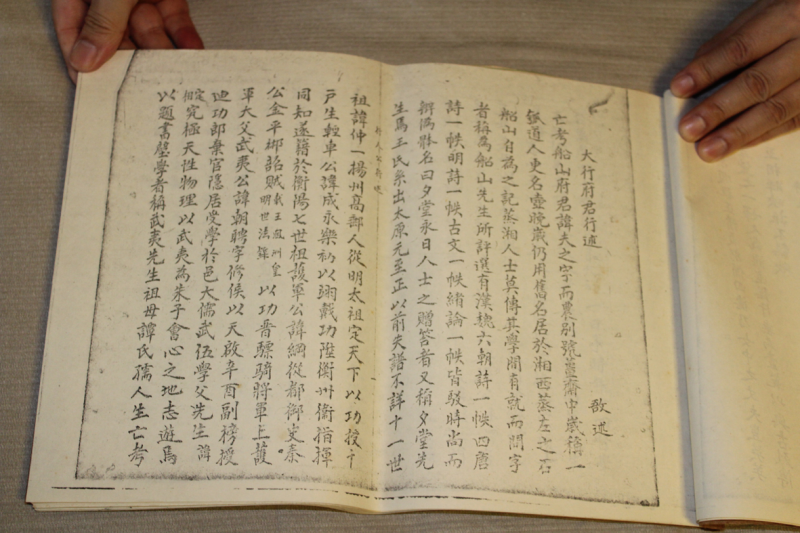 大行府君行述
敔述
亡考船山府君諱夫之字而農別號薑齋中歲稱一
瓠道人更名壺晚歲仍用舊名居於湘西蒸左之石
船山自為之記蒸湘人士莫傳其學間有就而問字
者稱為船山先生所評選有漢魏六朝詩一帙四唐
詩一帙明詩一帙古文一帙緒論一帙皆駁時尚而
辨偽體名曰夕堂永日人士之贈答者又稱夕堂先
生焉王氏系出太原元至正以前失譜不詳十一世
祖諱仲一揚州高郵人從明太祖定天下以功授千
戶生輕車公諱成永樂初以翊戴功陞衡州衛指揮
同知遂籍於衡陽七世祖護軍公諱綱從都御史秦
公金平郴韶賊載王弇州皇明世法錄以功晉驃騎將軍上護
軍大父武夷公諱朝聘字修侯以天啟辛酉副榜授
迪功郎棄官隱居受學於邑大儒武伍學父先生諱
定相究極天性物理以武夷為朱子會心之地志遊焉
以題書壁學者稱武夷先生祖母譚氏孺人生亡考